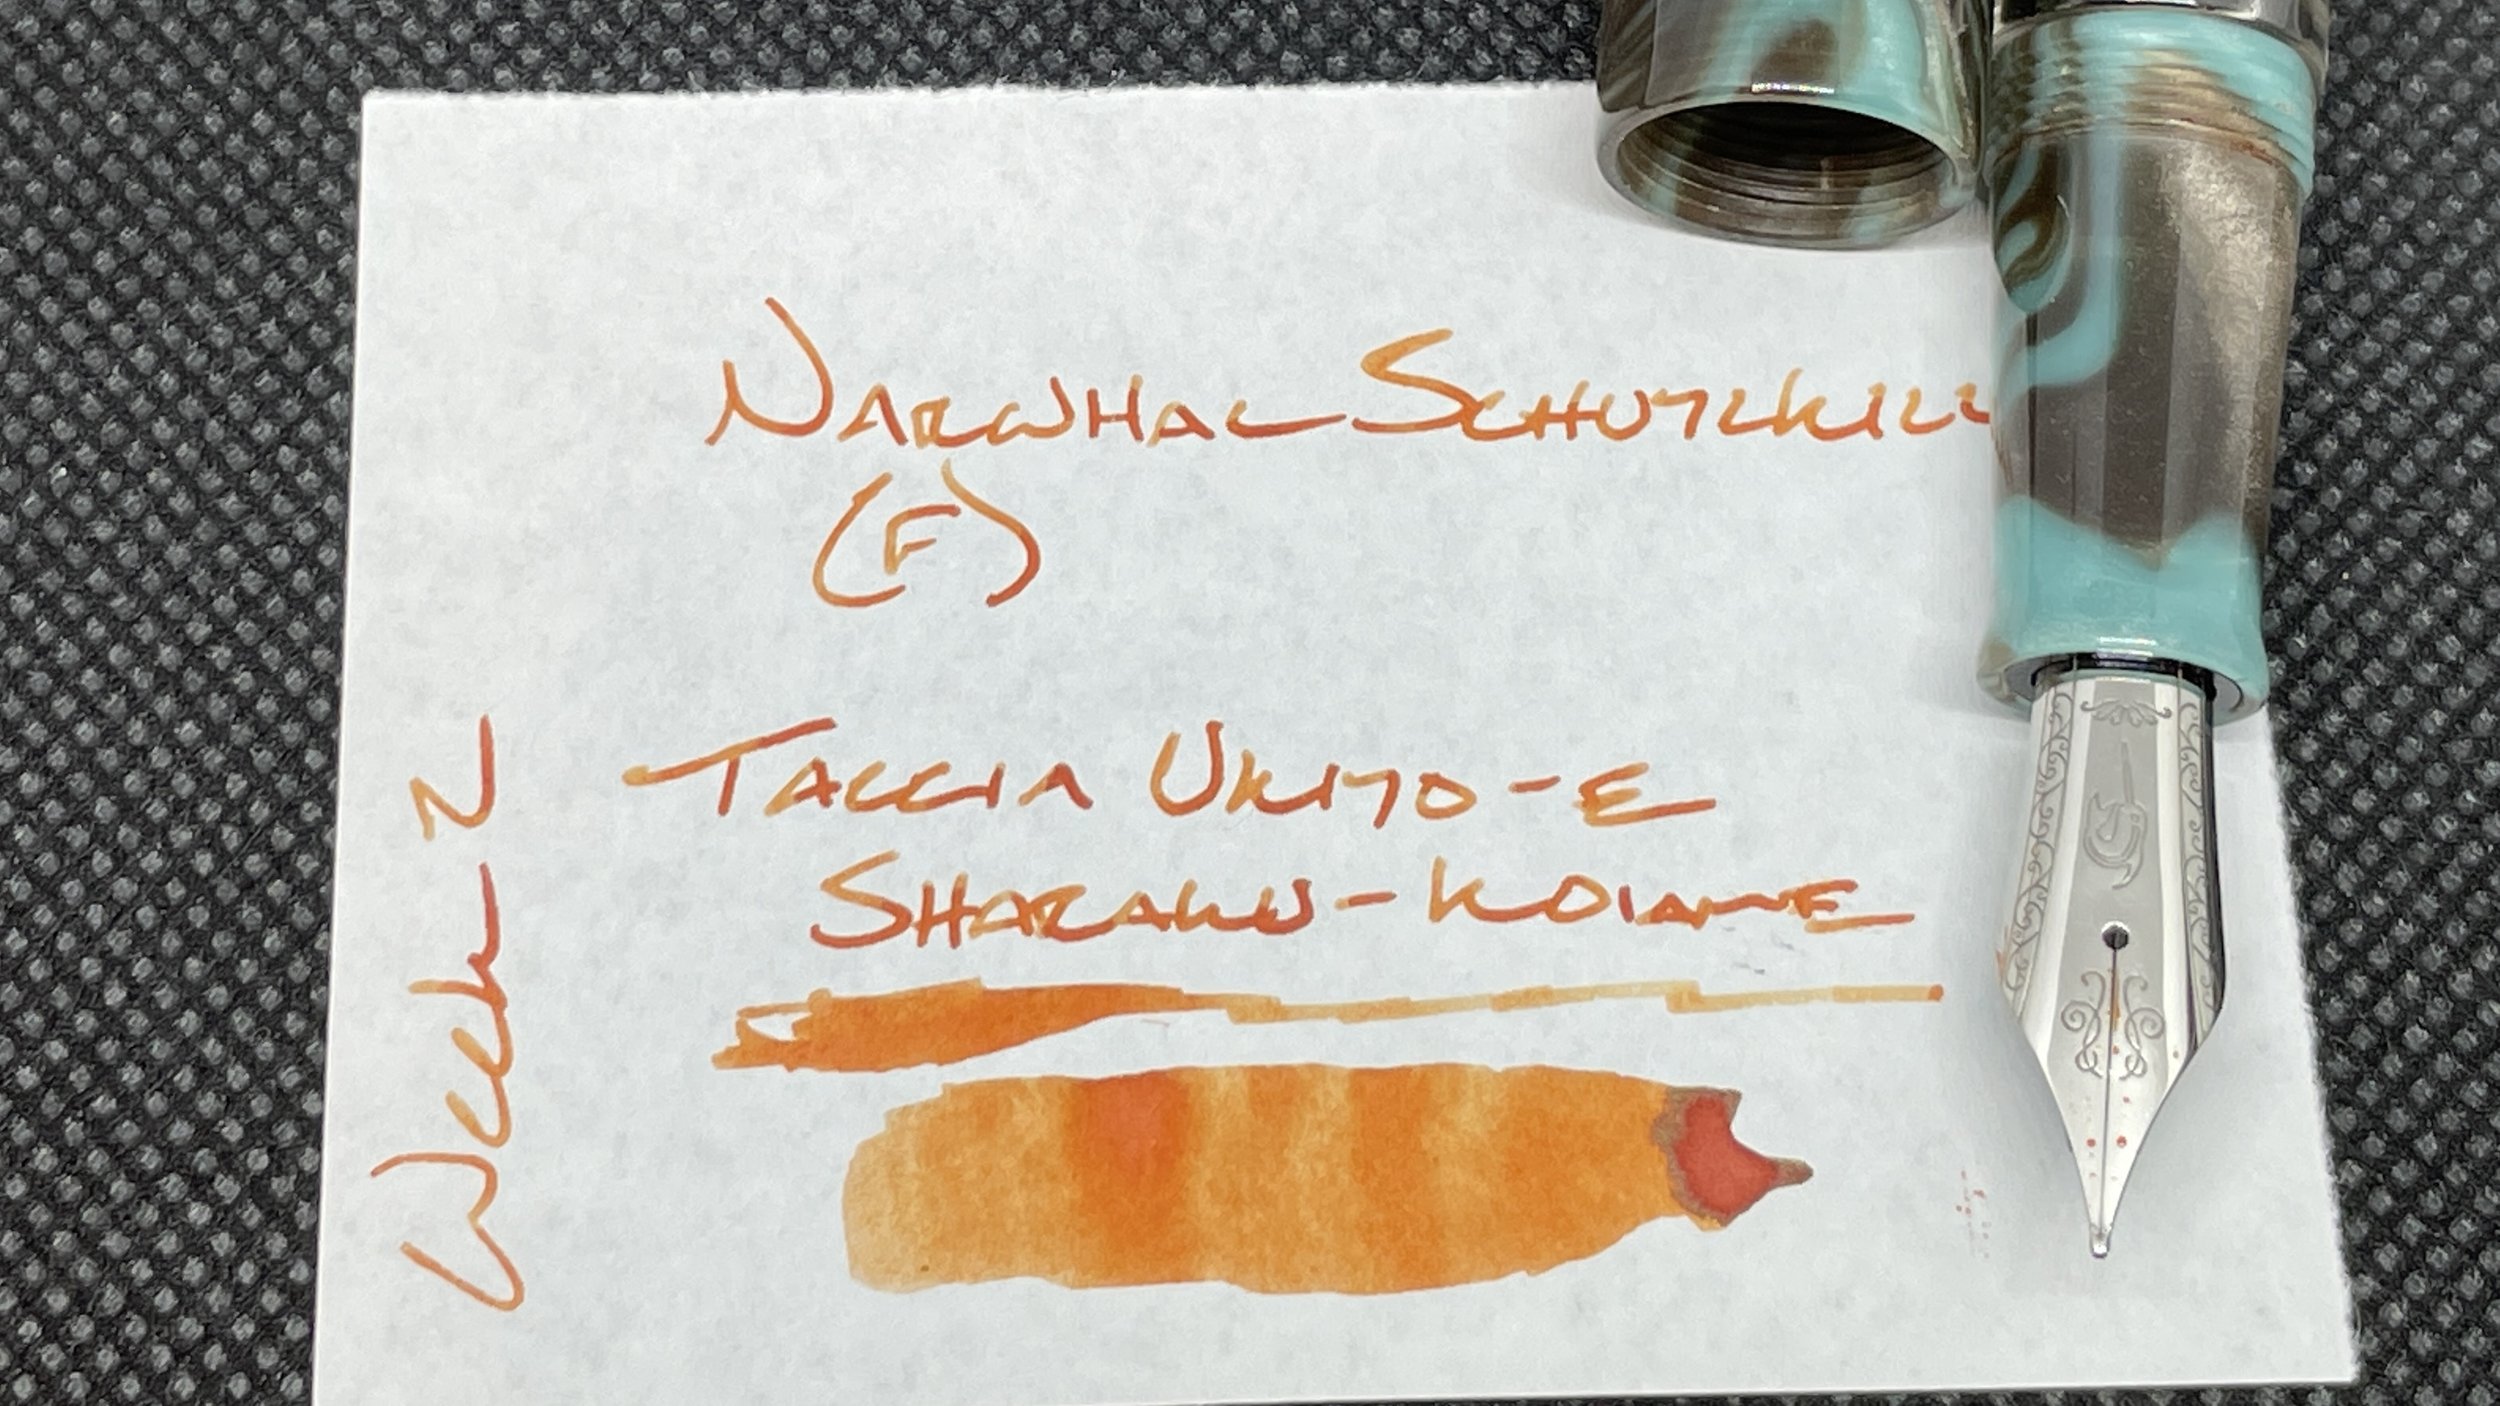 Narwhal Schuylkill
(F)
Taccia Ukiyo-e
Sharaku-Koiame
Week 2